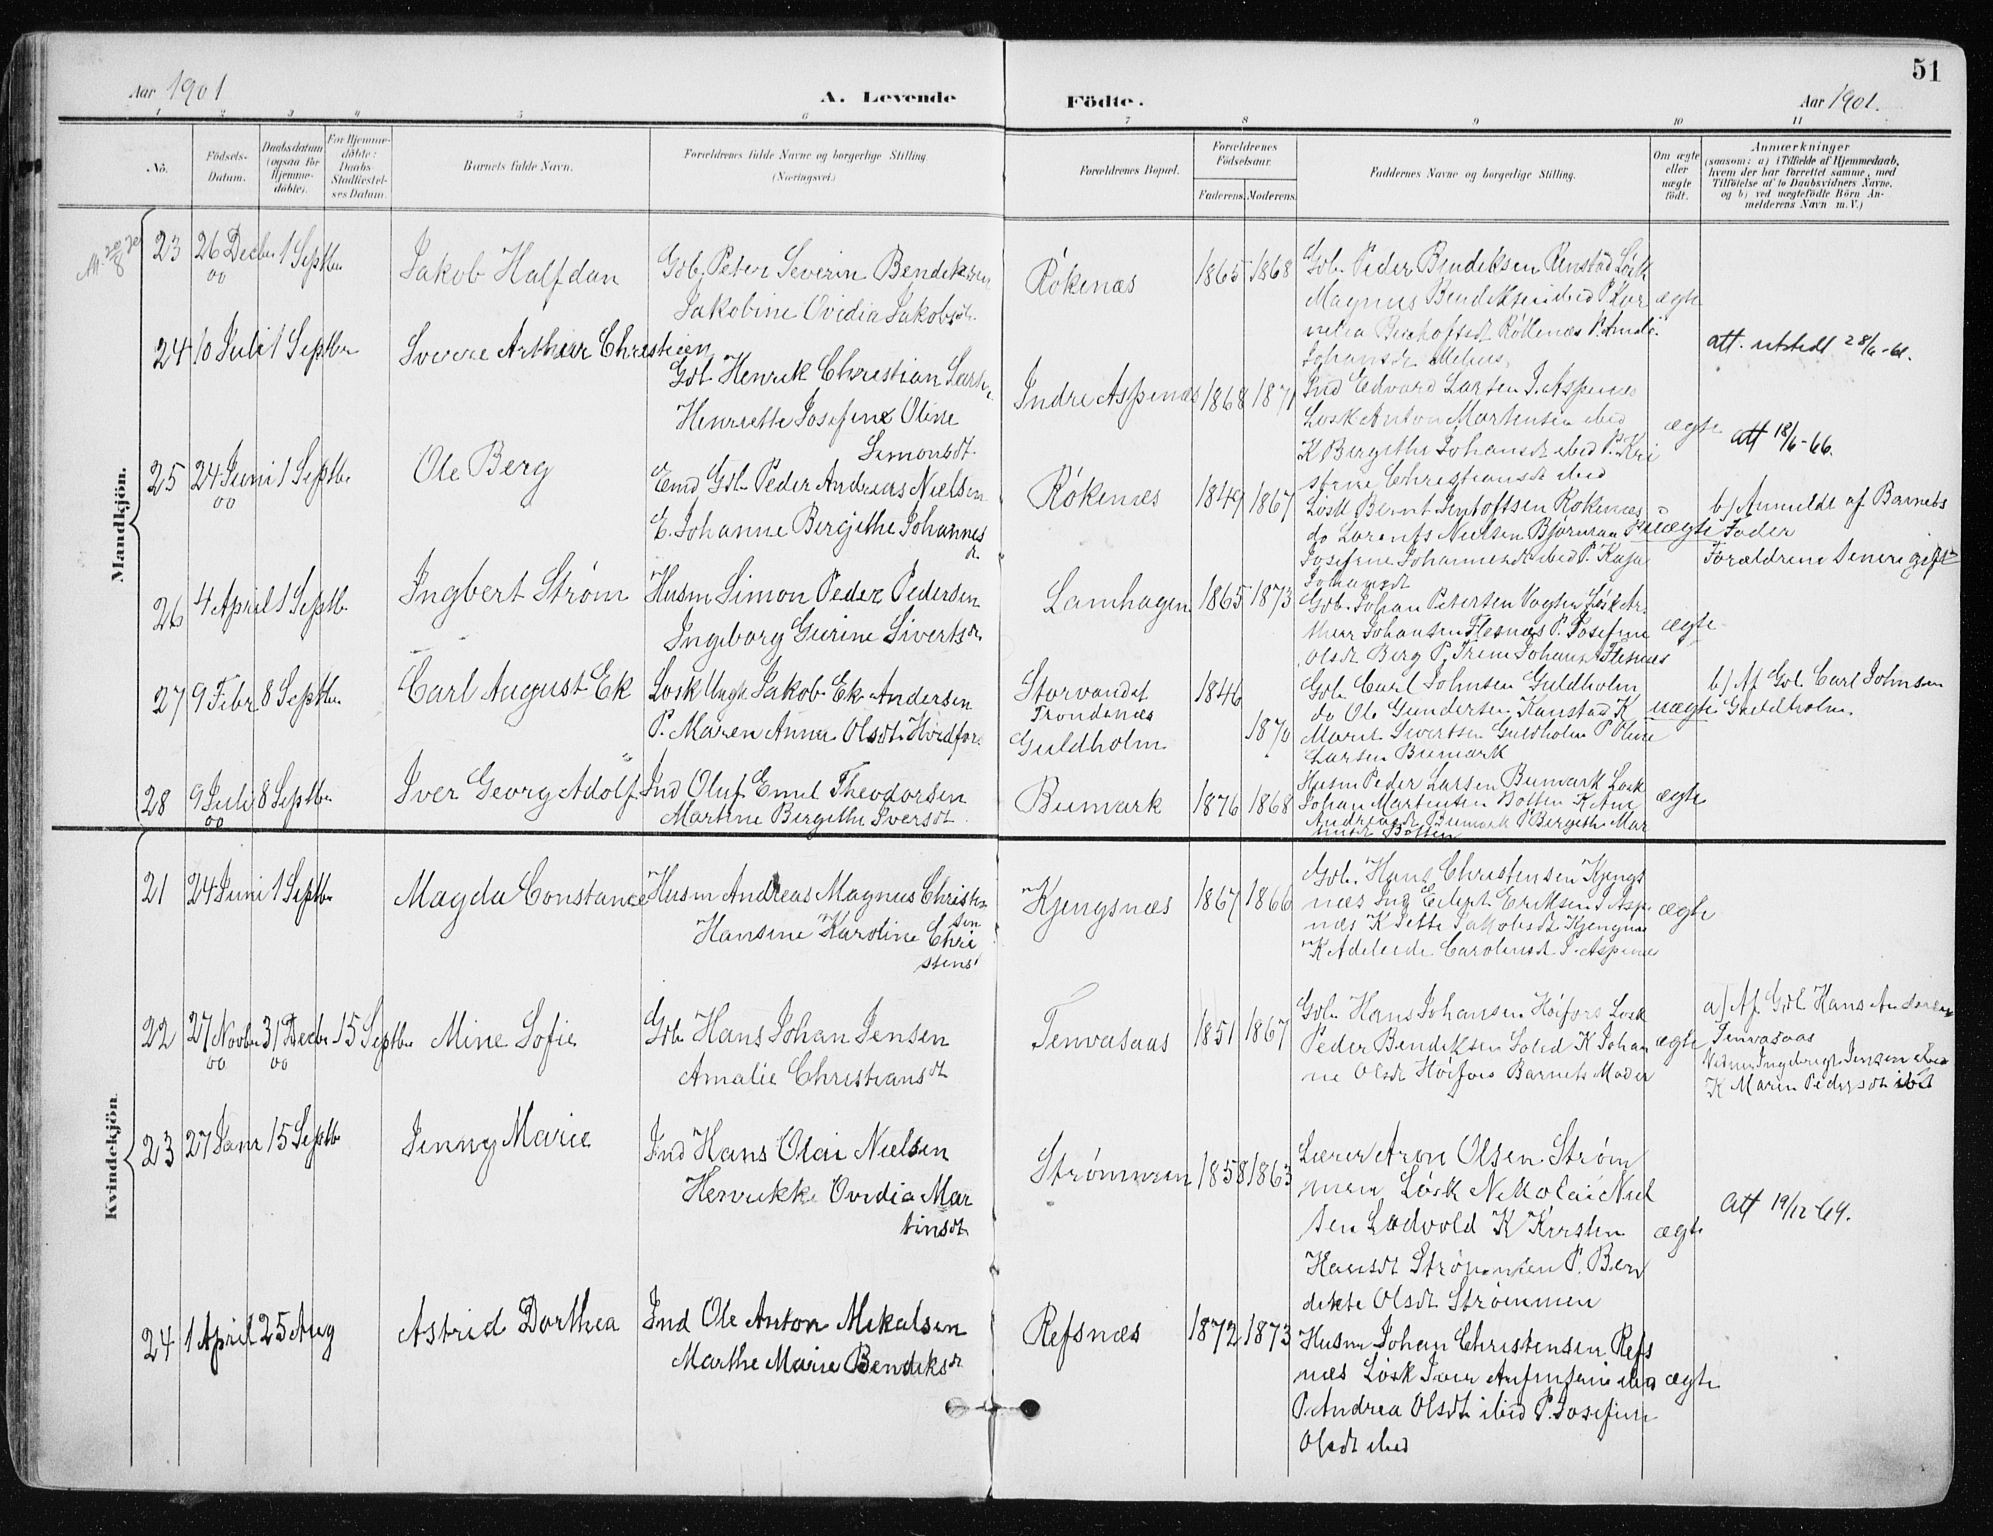 51
Aar 1901
A. Levende
Födte.
Aar 1901.
1 2 3 4 5 6 7 8 9 10 11
No.
Födsels-Datum.
Daabsdatum (ogsaa for Hjemmedöbte).
For Hjemmedöbte: Daabs-Stadfæstelses Datum.
Barnets fulde Navn.
Forældrenes fulde Navne og borgerlige Stilling. (Næringsvei.)
Forældrenes Bopæl.
Forældrenes Födselsaar.
Faderens. Moderens.
Faddernes Navne og borgerlige Stilling.
Om ægte eller uægte födt.
Anmærkninger
(saasom: a) i Tilfælde af Hjemmedaab, hvem der har forrettet samme, med Tilföielse af to Daabsvidners Navne, og b) ved uægtefödte Börn Anmelderens Navn m. V.)
Mandkjön.
23 26 Decbr 00 1 Septbr
Jakob Halfdan
Gdb. Peter Severin Bendiksen
Jakobine Ovidia Jakobsdt.
Rökenæs
1865 1868
Gdb. Peder Bendiksen Renstad Løsk
Magnus Bendiksen ibid P. Kor
nelia Rökenæs P.
Johansdt
ægte
24 10 Juli 1 Septbr
Sverre Arthur Christian
Gdb. Henrik Christian Larsen
Henriette Josefine Oline
Simonsdt.
Indre Aspenæs
1868 1871
Ind Edvard Larsen I. Aspenæs
Løsk Anton Martinsen ibid
K Bergithe Johansdt ibid P. Kri
stine Christiansdt ibid
ægte
att. utstedt 28/6-61.
att 18/6-66.
25 24 Juni 00 1 Septbr
Ole Berg
Emd Gdb. Peder Andreas Nielsen
E. Johanne Bergithe Johannes
dt
Rökenæs
1849 1867
Løsk Bernt Rökenæs
do Nielsen
Josefine Johannesdt ibid P. Kaja
Johansdt
uægte
b) Anmeldt af Barnets
Fader
Forældrene senere gift
26 4 April 1 Septbr
Ingbert Strøm
Husm Simon Peder Pedersen
Ingeborg Gurine Sivertsdt
Lamhagen
1865 1873
Gdb. Johan Petersen Løsk Ar
thur Johansen Flesnæs P. Josefine
Olsdt Berg P. Trine Johansdt Flesnæs
ægte
27 9 Febr 8 Septbr
Carl August Ek
Løsk Ungk. Jakob Ek Andersen
P. Maren Anna Olsdt. Hvidfors
Storvandet
Trondenæs
Guldholm
1846
1870
Gdb. Carl Johnsen Guldholm
do Ole Gundersen Kanstad K
Marit Sivertsen Guldholm P Oline
Larsen Bumark
uægte
b) Af Gdb. Carl Johnsen
Guldholm.
28 9 Juli 00 8 Septbr
Iver Georg Adolf
Ind Oluf Emil Theodorsen
Martine Bergithe Iversdt.
Bumark
1876 1868
Husm Peder Larsen Bumark Løsk
Johan Martinsen Botten K
Andreasdt Bumark P Bergithe Mar
tinsdt Botten
ægte
Kvindekjön.
21 24 Juni 1 Septbr
Magda Constance
Husm Andreas Magnus Christen
sen
Hansine Karoline Chri
stens
Kjengsnæs
1867 1866
Gdb. Hans Christensen Kjengs
næs Ind Eilert Eriksen I Aspe
næs K Jette Jakobsdt Kjengnæs
K Adeleide Carolinsdt I. Aspenæs
ægte
22 27 Novbr 00 31 Decbr 00 15 Septbr
Mine Sofie
Gdb Hans Johan Jensen
Amalie Christiansdt
Tenvasaas
1851 1867
Gdb. Hans Johansen Høifors Løsk
Peder Bendiksen K Johan
ne Olsdt Høifors Barnets Moder
ægte
a) Af Gdb. Hans Andersen
Tenvasaas
Vidner Ingebrigt Jensen ibid
K Maren Pedersdt ibid
23 27 Janr 15 Septbr
Jenny Marie
Ind Hans Olai Nielsen
Henrikke Ovidia Mar
tinsdt
Strømmen
1858 1863
Lærer Aron Olsen Strøm
men Løsk Nikolai Niel
sen Ladvold K Kirsten
Hansdt Strømmen P. Ben
dikte Olsdt Strømmen
ægte
att 19/12-64.
24 1 April 25 Aug
Astrid Dorthea
Ind Ole Anton Mikalsen
Marthe Marie Bendiksdt
Refsnæs
1872 1873
Husm Johan Christensen Refs
næs Løsk Iver ibid
P. Andrea Olsdt ibid P. Josefine
Olsdt ibid
ægte